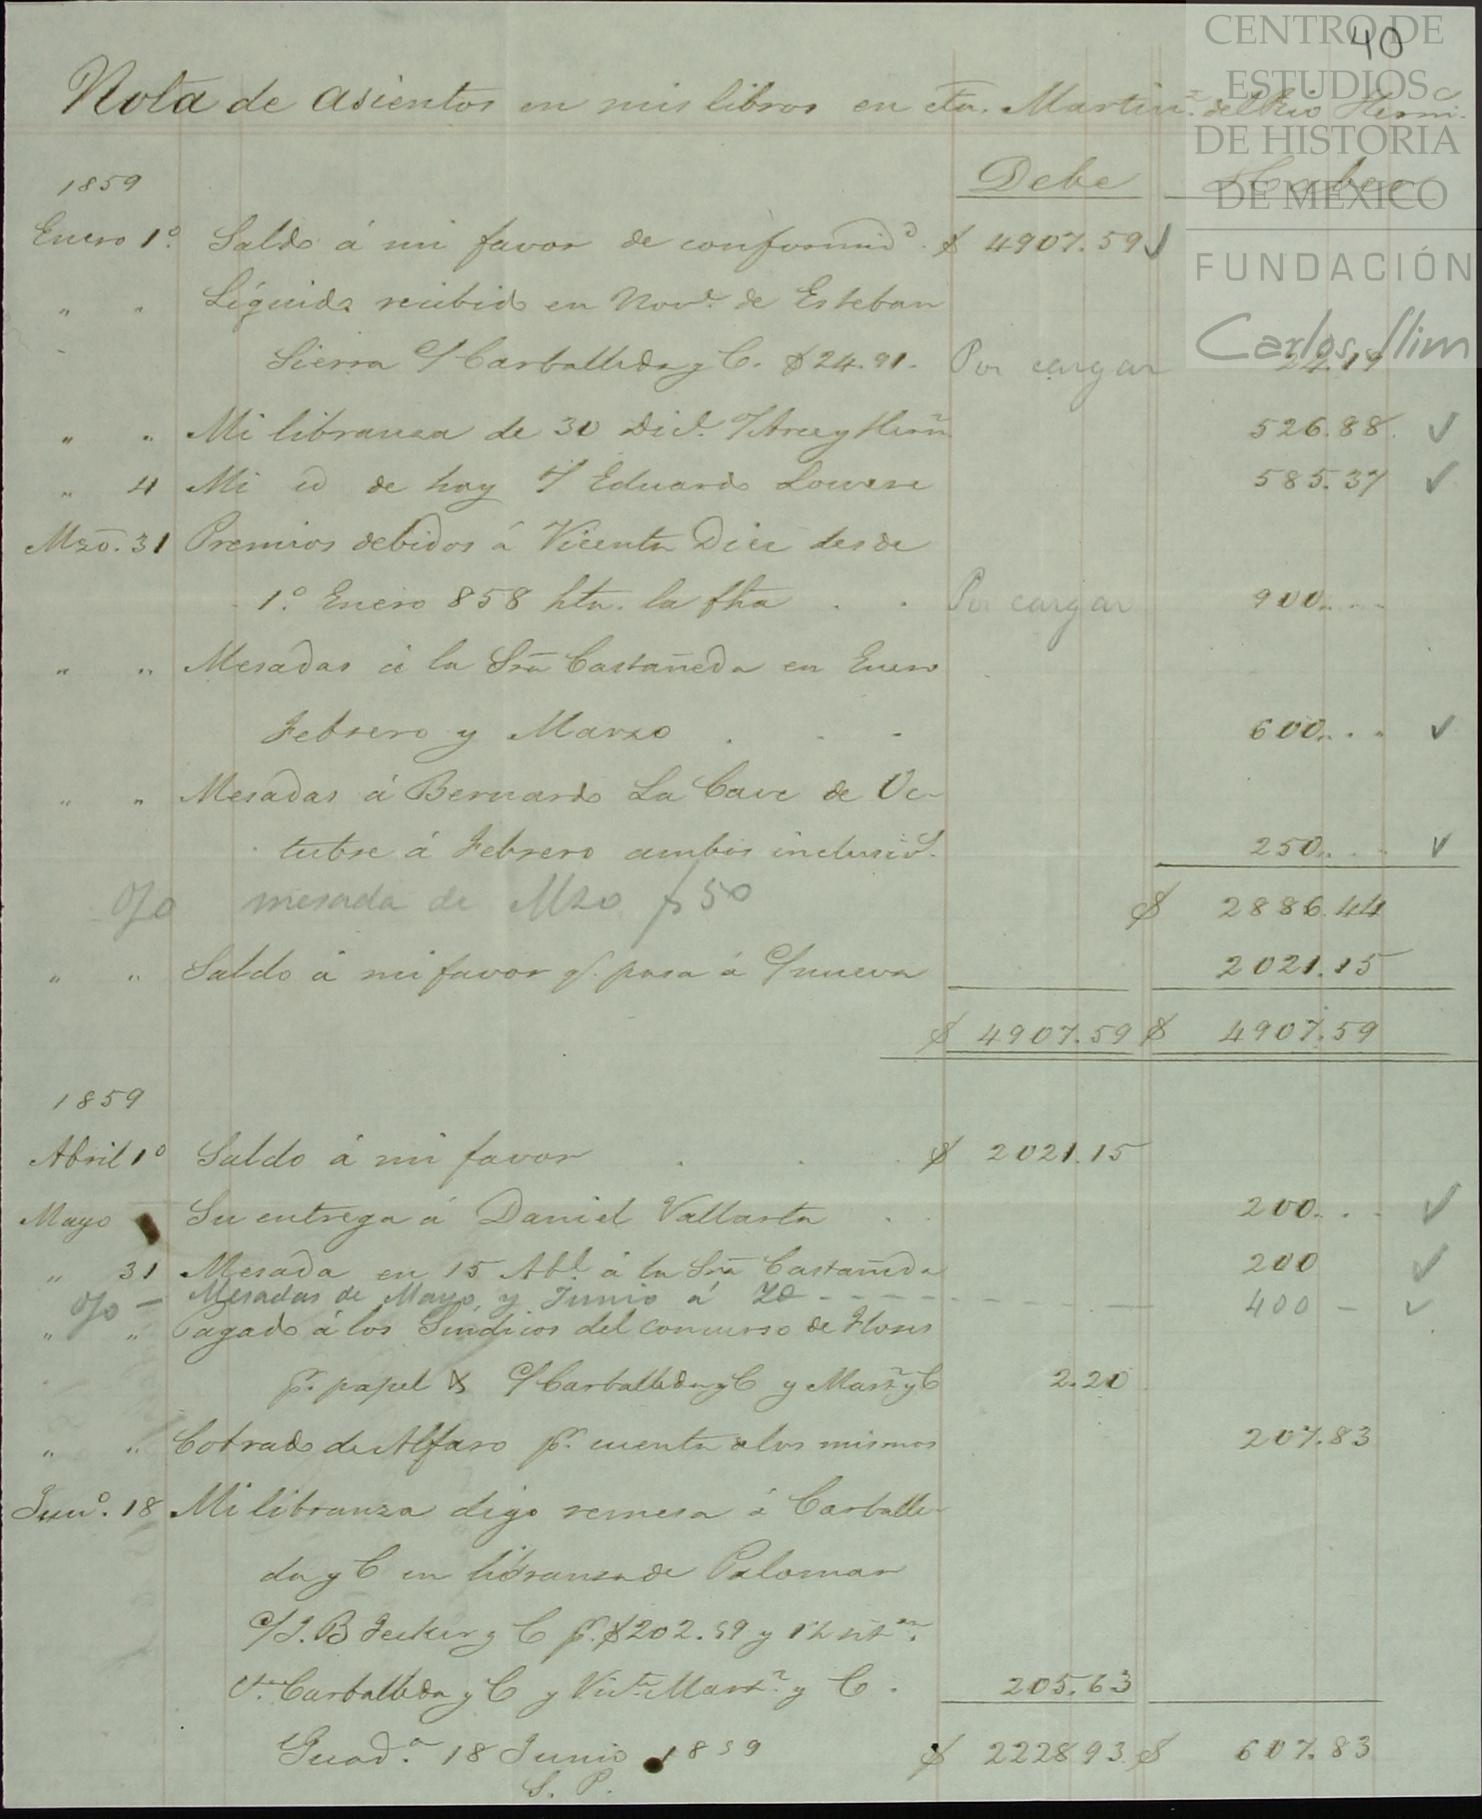 40
CENTRO DE
ESTUDIOS
DE HISTORIA
DE MÉXICO
FUNDACIÓN
Carlos Slim
Nota de asientos en mis libros en cta. Martin.z del Rio Herm.
1859 Debe Haber
Enero 1º Saldo á mi favor de conformid.d $ 4907.59 ✓
" " Líquido recibido en Nov.e de Esteban
Sierra c/ Carballeda y C. $24.91. Por cargar 24.19
" " Mi libranza de 30 Dic.e f/ Arce y Herm 526.88 ✓
" 4 Mi id de hoy f/ Eduardo Lowere 585.37 ✓
Mzo. 31 Premios debidos á Vicenta Diez desde
1º Enero 858 hta. la fha . . Por cargar 900....
" " Mesadas á la Sra Castañeda en Enero
Febrero y Marzo . . . 600.... ✓
" " Mesadas á Bernardo La Cave de Oc-
tubre á Febrero ambos inclusiv. 250.... ✓
o/o mesada de Mzo $50 $ 2886.44
" " Saldo á mi favor q. pasa á c/ nueva 2021.15
$ 4907.59 $ 4907.59
1859
Abril 1º Saldo á mi favor . . . $ 2021.15
Mayo Su entrega á Daniel Vallarta . . 200... ✓
" 31 Mesada en 15 Abl. á la Sra Castañeda 200 ✓
o/o - Mesadas de Mayo y Junio á - - - - - 400 - ✓
" " Pagado á los Síndicos del concurso de Flores
p.r papel & c/ Carballeda y C y Mart.z y C 2.20
" " Cobrado de Alfaro p.r cuenta de los mismos 207.83
Jun.o 18 Mi libranza digo remesa á Carballe-
da y C en libranza de Palomar
c/ J. B Jecker y C p.r $202.59 y
Carballeda y C y Mart.z y C. 205.63
Guad.a 18 Junio 1859 $ 2228.93 $ 607.83
S. P.